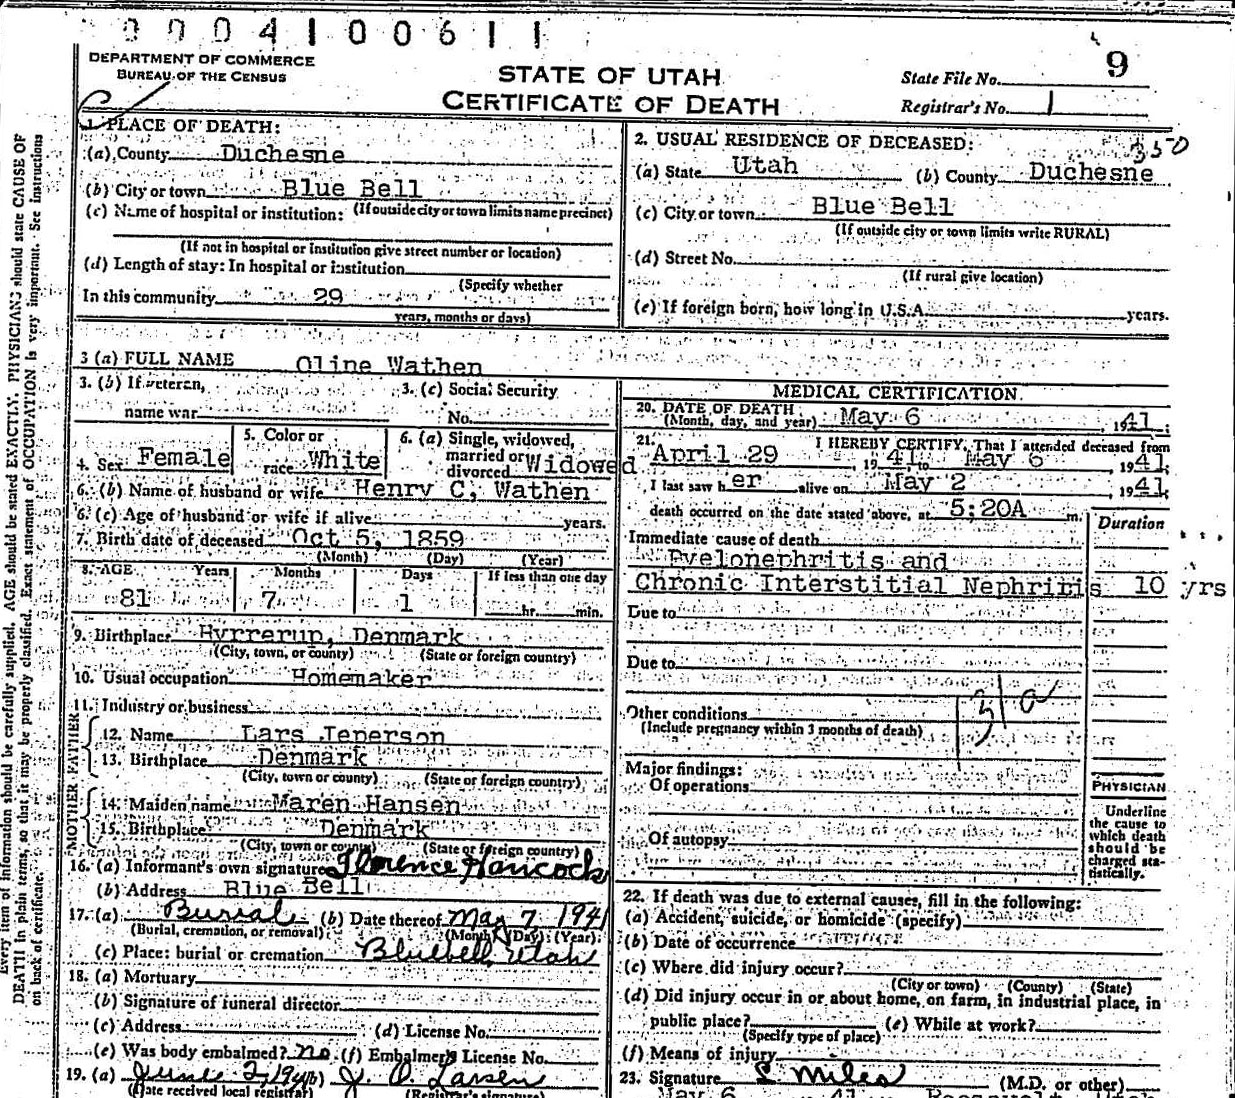 0004100611
DEPARTMENT OF COMMERCE
BUREAU OF THE CENSUS
STATE OF UTAH
CERTIFICATE OF DEATH
State File No. 9
Registrar's No. 1
1. PLACE OF DEATH:
(a) County Duchesne
(b) City or town Blue Bell
(c) Name of hospital or institution: (If outside city or town limits name precinct)
(If not in hospital or institution give street number or location)
(d) Length of stay: In hospital or institution
(Specify whether
In this community 29
years, months or days)
2. USUAL RESIDENCE OF DECEASED:
350
(a) State Utah (b) County Duchesne
(c) City or town Blue Bell
(If outside city or town limits write RURAL)
(d) Street No.
(If rural give location)
(e) If foreign born, how long in U.S.A. years.
3 (a) FULL NAME Oline Wathen
3. (b) If veteran, 3. (c) Social Security
name war No.
4. Sex Female 5. Color or race White 6. (a) Single, widowed, married or divorced Widowed
6. (b) Name of husband or wife Henry C, Wathen
6. (c) Age of husband or wife if alive years.
7. Birth date of deceased Oct 5, 1859
(Month) (Day) (Year)
8. AGE Years Months Days If less than one day
81 7 1 hr. min.
9. Birthplace Hyrrerup, Denmark
(City, town, or county) (State or foreign country)
10. Usual occupation Homemaker
11. Industry or business
FATHER
12. Name Lars Jeperson
13. Birthplace Denmark
(City, town or county) (State or foreign country)
MOTHER
14. Maiden name Maren Hansen
15. Birthplace Denmark
(City, town or county) (State or foreign country)
16. (a) Informant's own signature Florence Hancock
(b) Address Blue Bell
17. (a) Burial (b) Date thereof May 7 1941
(Burial, cremation, or removal) (Month) (Day) (Year)
(c) Place: burial or cremation Bluebell, Utah
18. (a) Mortuary
(b) Signature of funeral director
(c) Address (d) License No.
(e) Was body embalmed? no (f) Embalmer's License No.
19. (a) June 2, 1941 (b) J. O. Larsen
(Date received local registrar) (Registrar's signature)
MEDICAL CERTIFICATION
20. DATE OF DEATH
(Month, day, and year) May 6, 1941;
21. I HEREBY CERTIFY, That I attended deceased from
April 29, 1941, to May 6, 1941;
I last saw her alive on May 2, 1941;
death occurred on the date stated above, at 5:20A m.
Duration
Immediate cause of death
Pyelonephritis and
Chronic Interstitial Nephriris 10 yrs
Due to
Due to
131a
Other conditions
(Include pregnancy within 3 months of death)
Major findings:
Of operations
Of autopsy
PHYSICIAN
Underline
the cause to
which death
should be
charged sta-
tistically.
22. If death was due to external causes, fill in the following:
(a) Accident, suicide, or homicide (specify)
(b) Date of occurrence
(c) Where did injury occur?
(City or town) (County) (State)
(d) Did injury occur in or about home, on farm, in industrial place, in
public place? (e) While at work?
(Specify type of place)
(f) Means of injury
23. Signature S Miles (M.D. or other)
May 6 41 Roosevelt, Utah
Every item of information should be carefully supplied. AGE should be stated EXACTLY, PHYSICIANS should state CAUSE OF
DEATH in plain terms, so that it may be properly classified. Exact statement of OCCUPATION is very important. See instructions
on back of certificate.